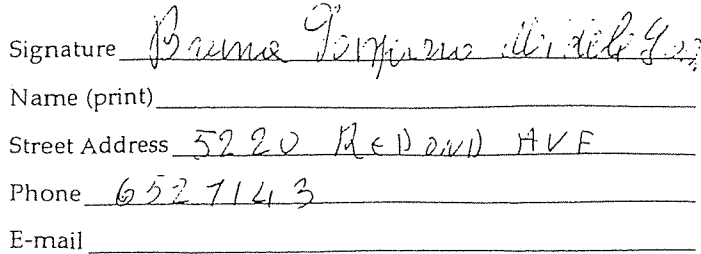 Signature Bruna
Name (print)
Street Address 5220 REDOND AVE
Phone 6527143
E-mail